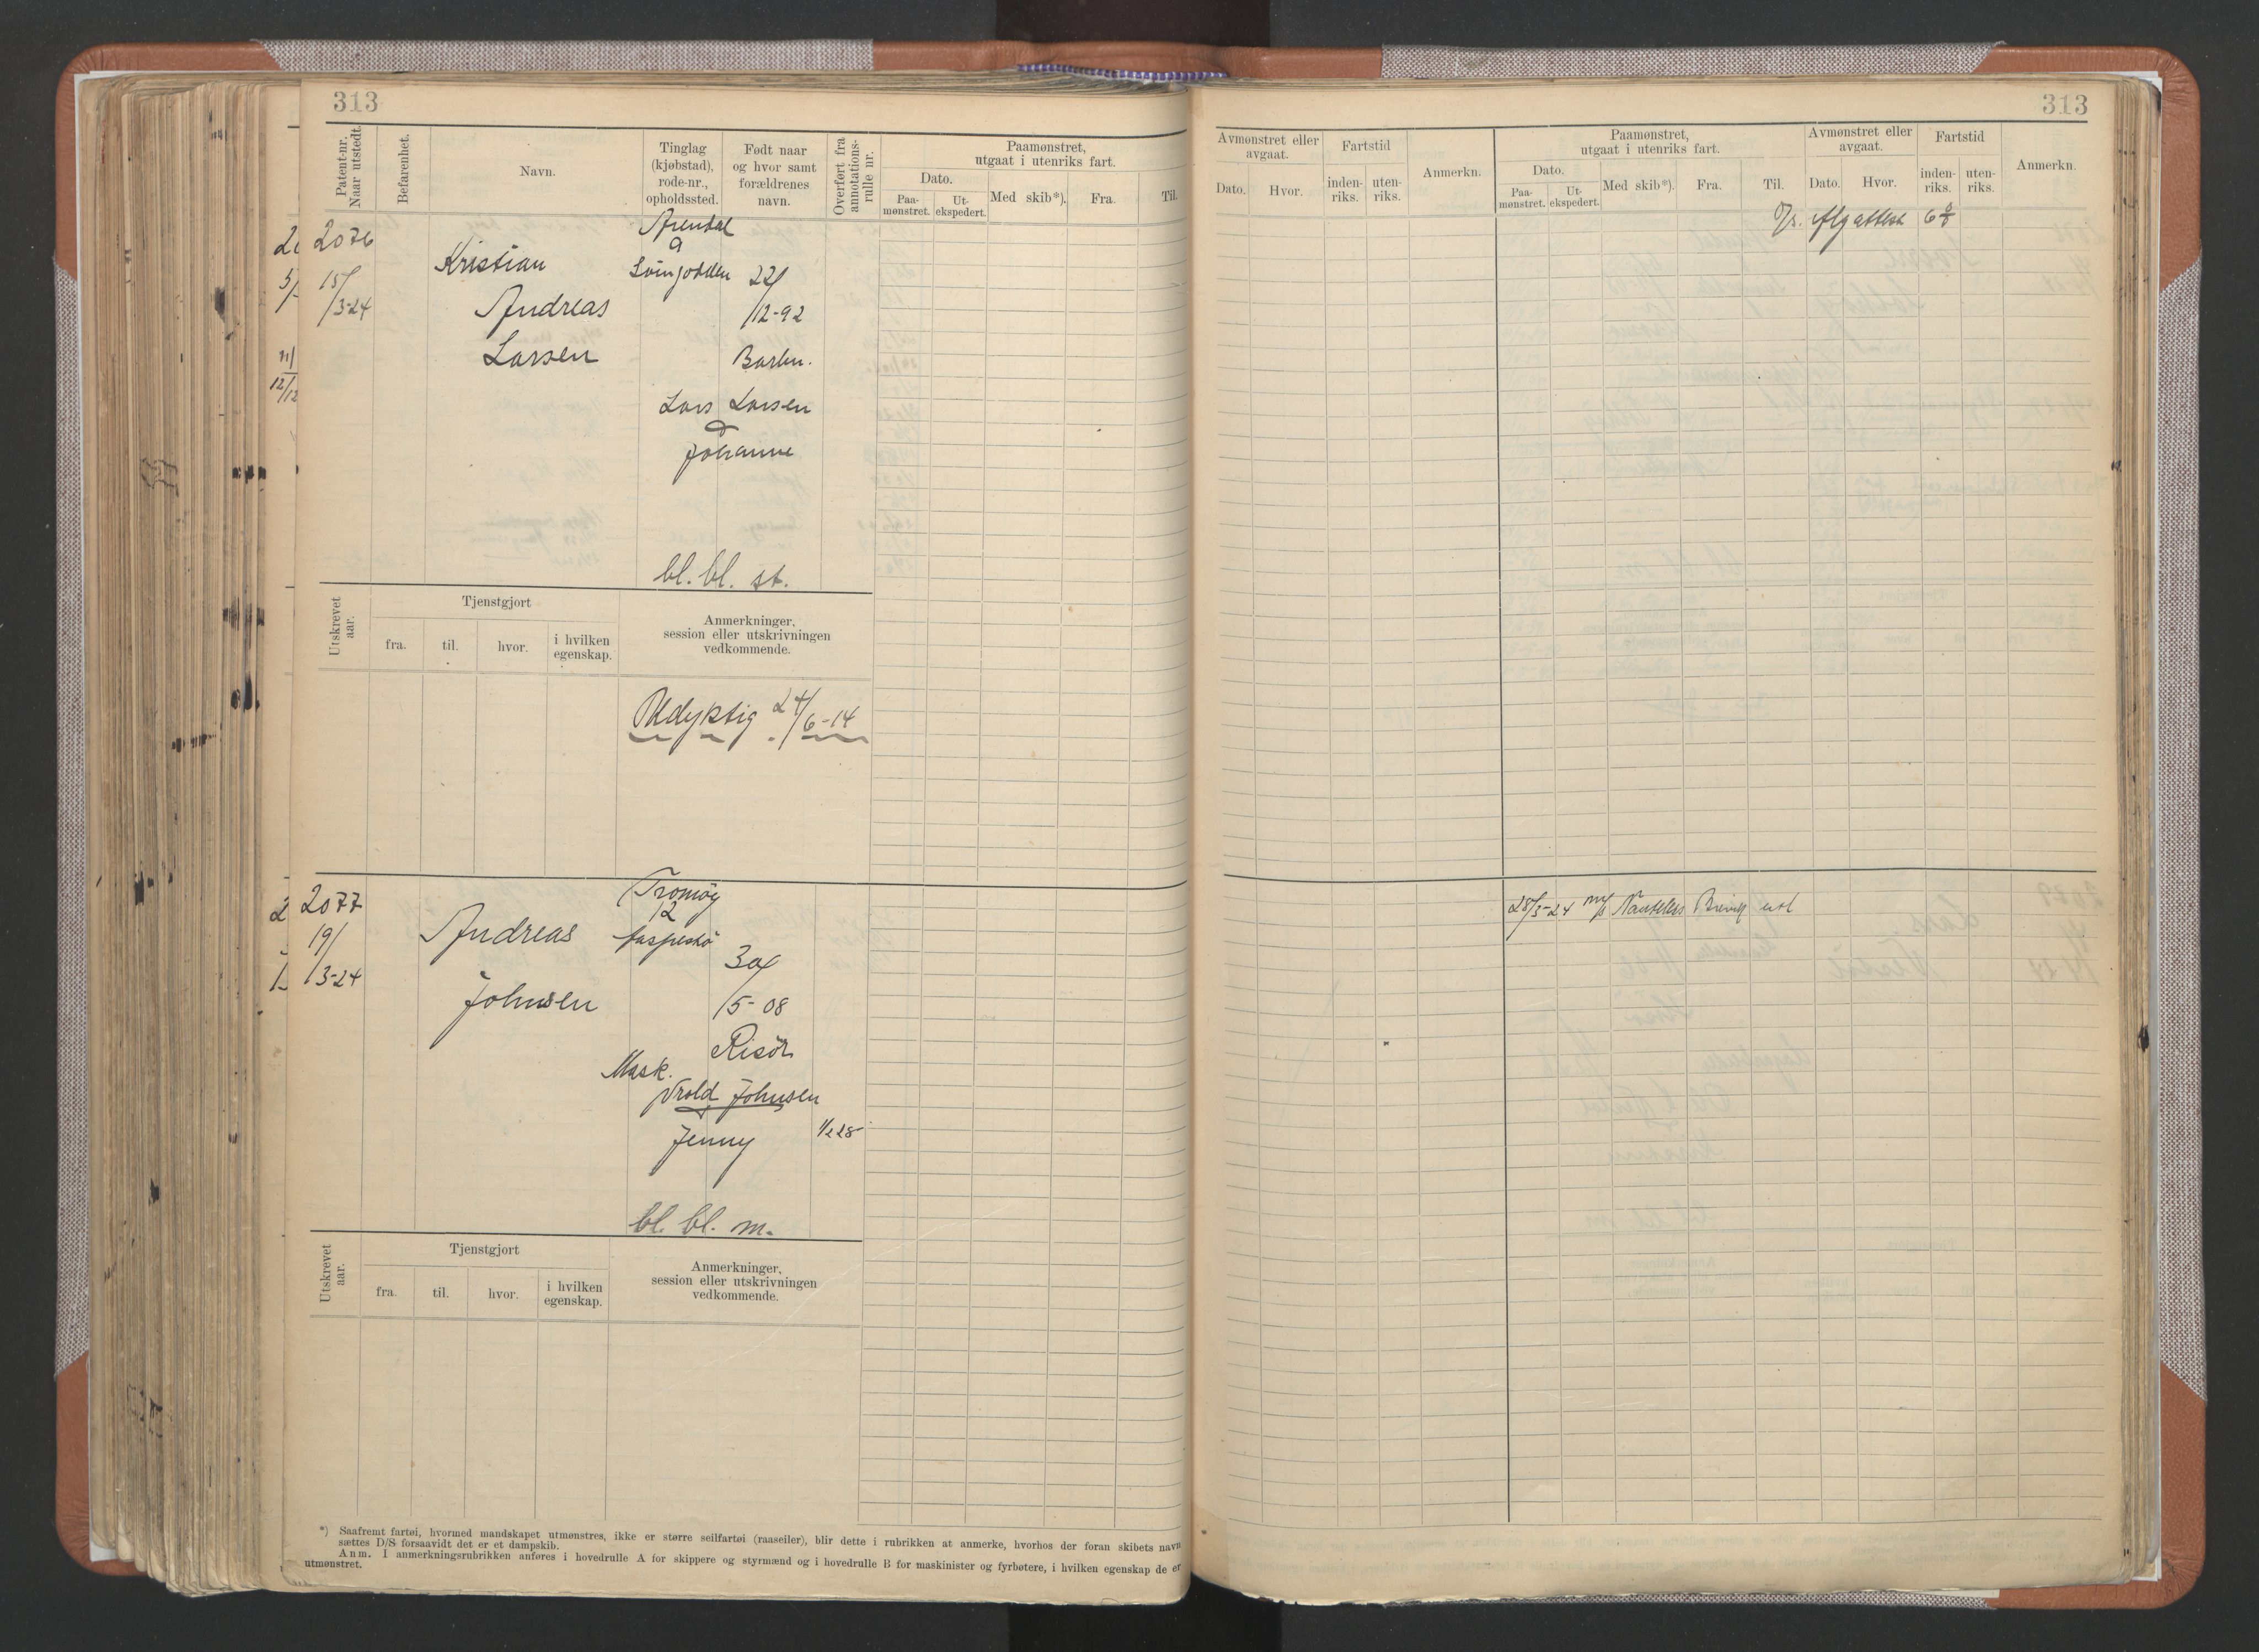 313
Patent-nr. Naar utstedt.
Befarenhet.
Navn.
Tinglag (kjøbstad), rode-nr., opholdssted.
Født naar og hvor samt forældrenes navn.
Overført fra annotations-rulle nr.
Paamønstret, utgaat i utenriks fart.
Dato.
Paa-mønstret.
Ut-ekspedert.
Med skib*).
Fra.
Til.
2076
15/3-24
Kristian
Andreas
Larsen
Arendal
9
22/12-92
Barbu.
Lars Larsen
Johanne
bl. bl. st.
Utskrevet aar.
Tjenstgjort
fra.
til.
hvor.
i hvilken egenskap.
Anmerkninger, session eller utskrivningen vedkommende.
Udyktig 24/6-14
2077
19/3-24
Andreas
Johnsen
Tromøy
12
30/5-08
Risör
Mask.
Johnsen
Jenny
1/2 28
bl. bl. m.
Utskrevet aar.
Tjenstgjort
fra.
til.
hvor.
i hvilken egenskap.
Anmerkninger, session eller utskrivningen vedkommende.
*) Saafremt fartøi, hvormed mandskapet utmønstres, ikke er større seilfartøi (raaseiler), blir dette i rubrikken at anmerke, hvorhos der foran skibets navn
sættes D/S forsaavidt det er et dampskib.
Anm. I anmerkningsrubrikken anføres i hovedrulle A for skippere og styrmænd og i hovedrulle B for maskinister og fyrbøtere, i hvilken egenskap de er
utmønstret.
313
Avmønstret eller avgaat.
Dato.
Hvor.
Fartstid
inden-riks.
uten-riks.
Anmerkn.
Paamønstret, utgaat i utenriks fart.
Dato.
Paa-mønstret.
Ut-ekspedert.
Med skib*).
Fra.
Til.
Avmønstret eller avgaat.
Dato.
Hvor.
Fartstid
inden-riks.
uten-riks.
Anmerkn.
28/3-24 Brevik